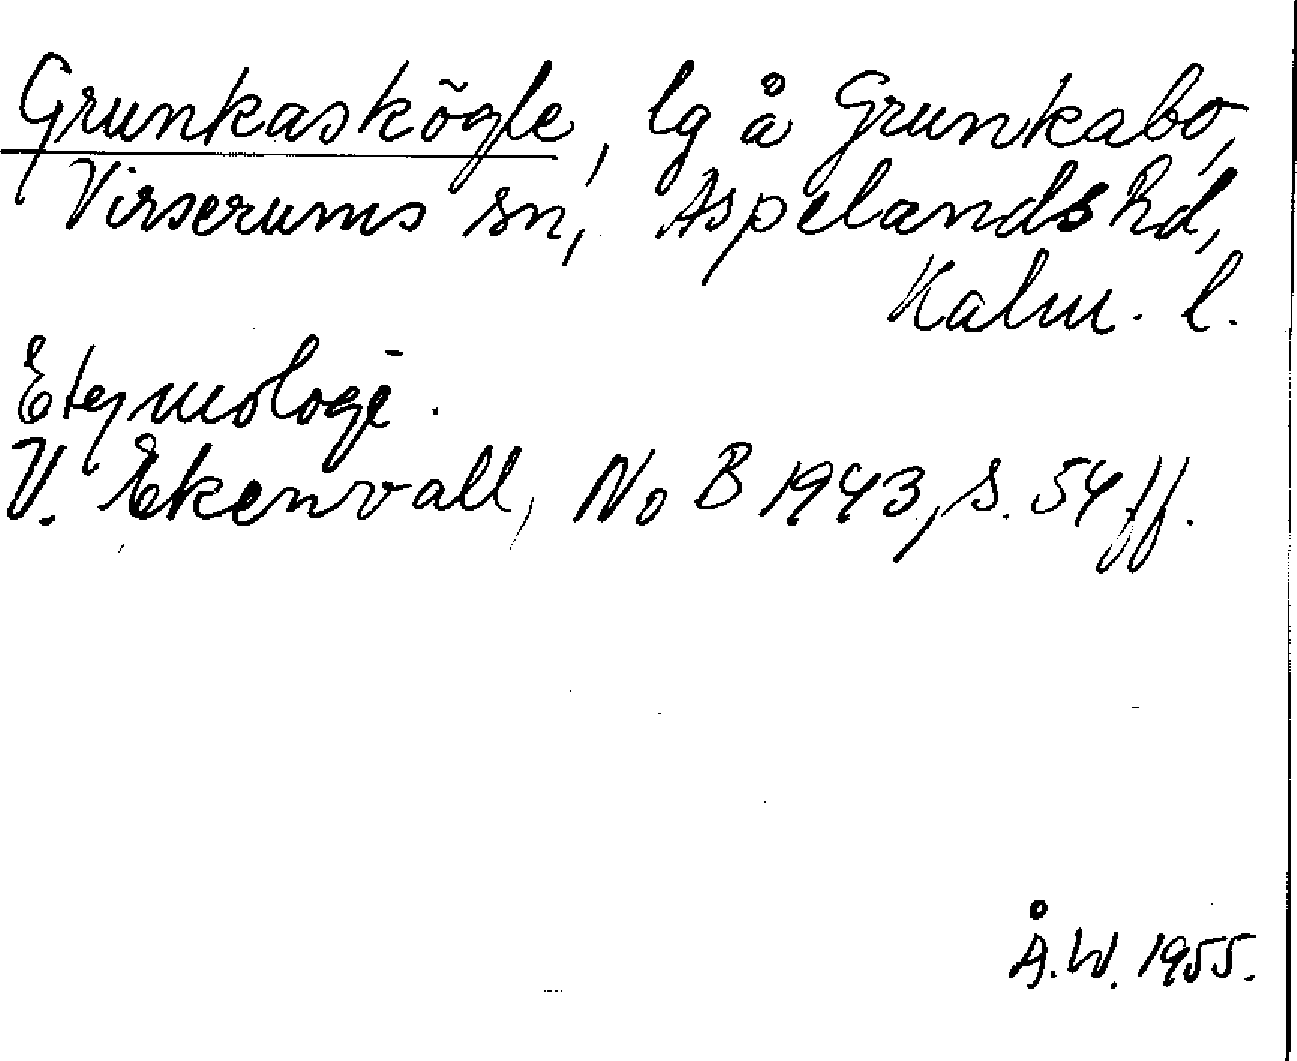 Grunkaskögle, lg å Grunkabo,
Virserums sn, Aspelands hd,
Kalm. l.
Etymologi.
V. Ekenvall, NoB 1943, s. 54 ff.
Å.W. 1955.